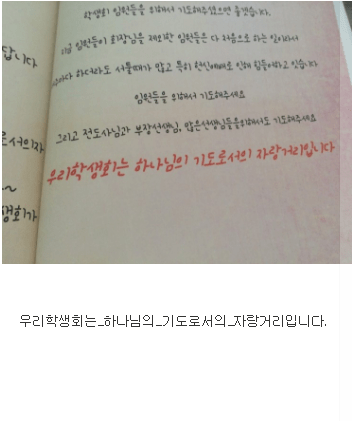 학생회 임원들을 위해서 기도해주셨으면 좋겠습니다.
임원들이 회장님을 제외한 임원들은 다 처음으로 하는 일이라서
하더라도 서툴때가 많고 특히 헌신예배로 인해 힘들어하고 있습니다
임원들을 위해서 기도해주세요
그리고 전도사님과 부장선생님, 많은선생님들을위해서도 기도해주세요
우리학생회는 하나님의 기도로서의 자랑거리입니다
답니다
~
생회가
우리학생회는_하나님의_기도로서의_자랑거리입니다.